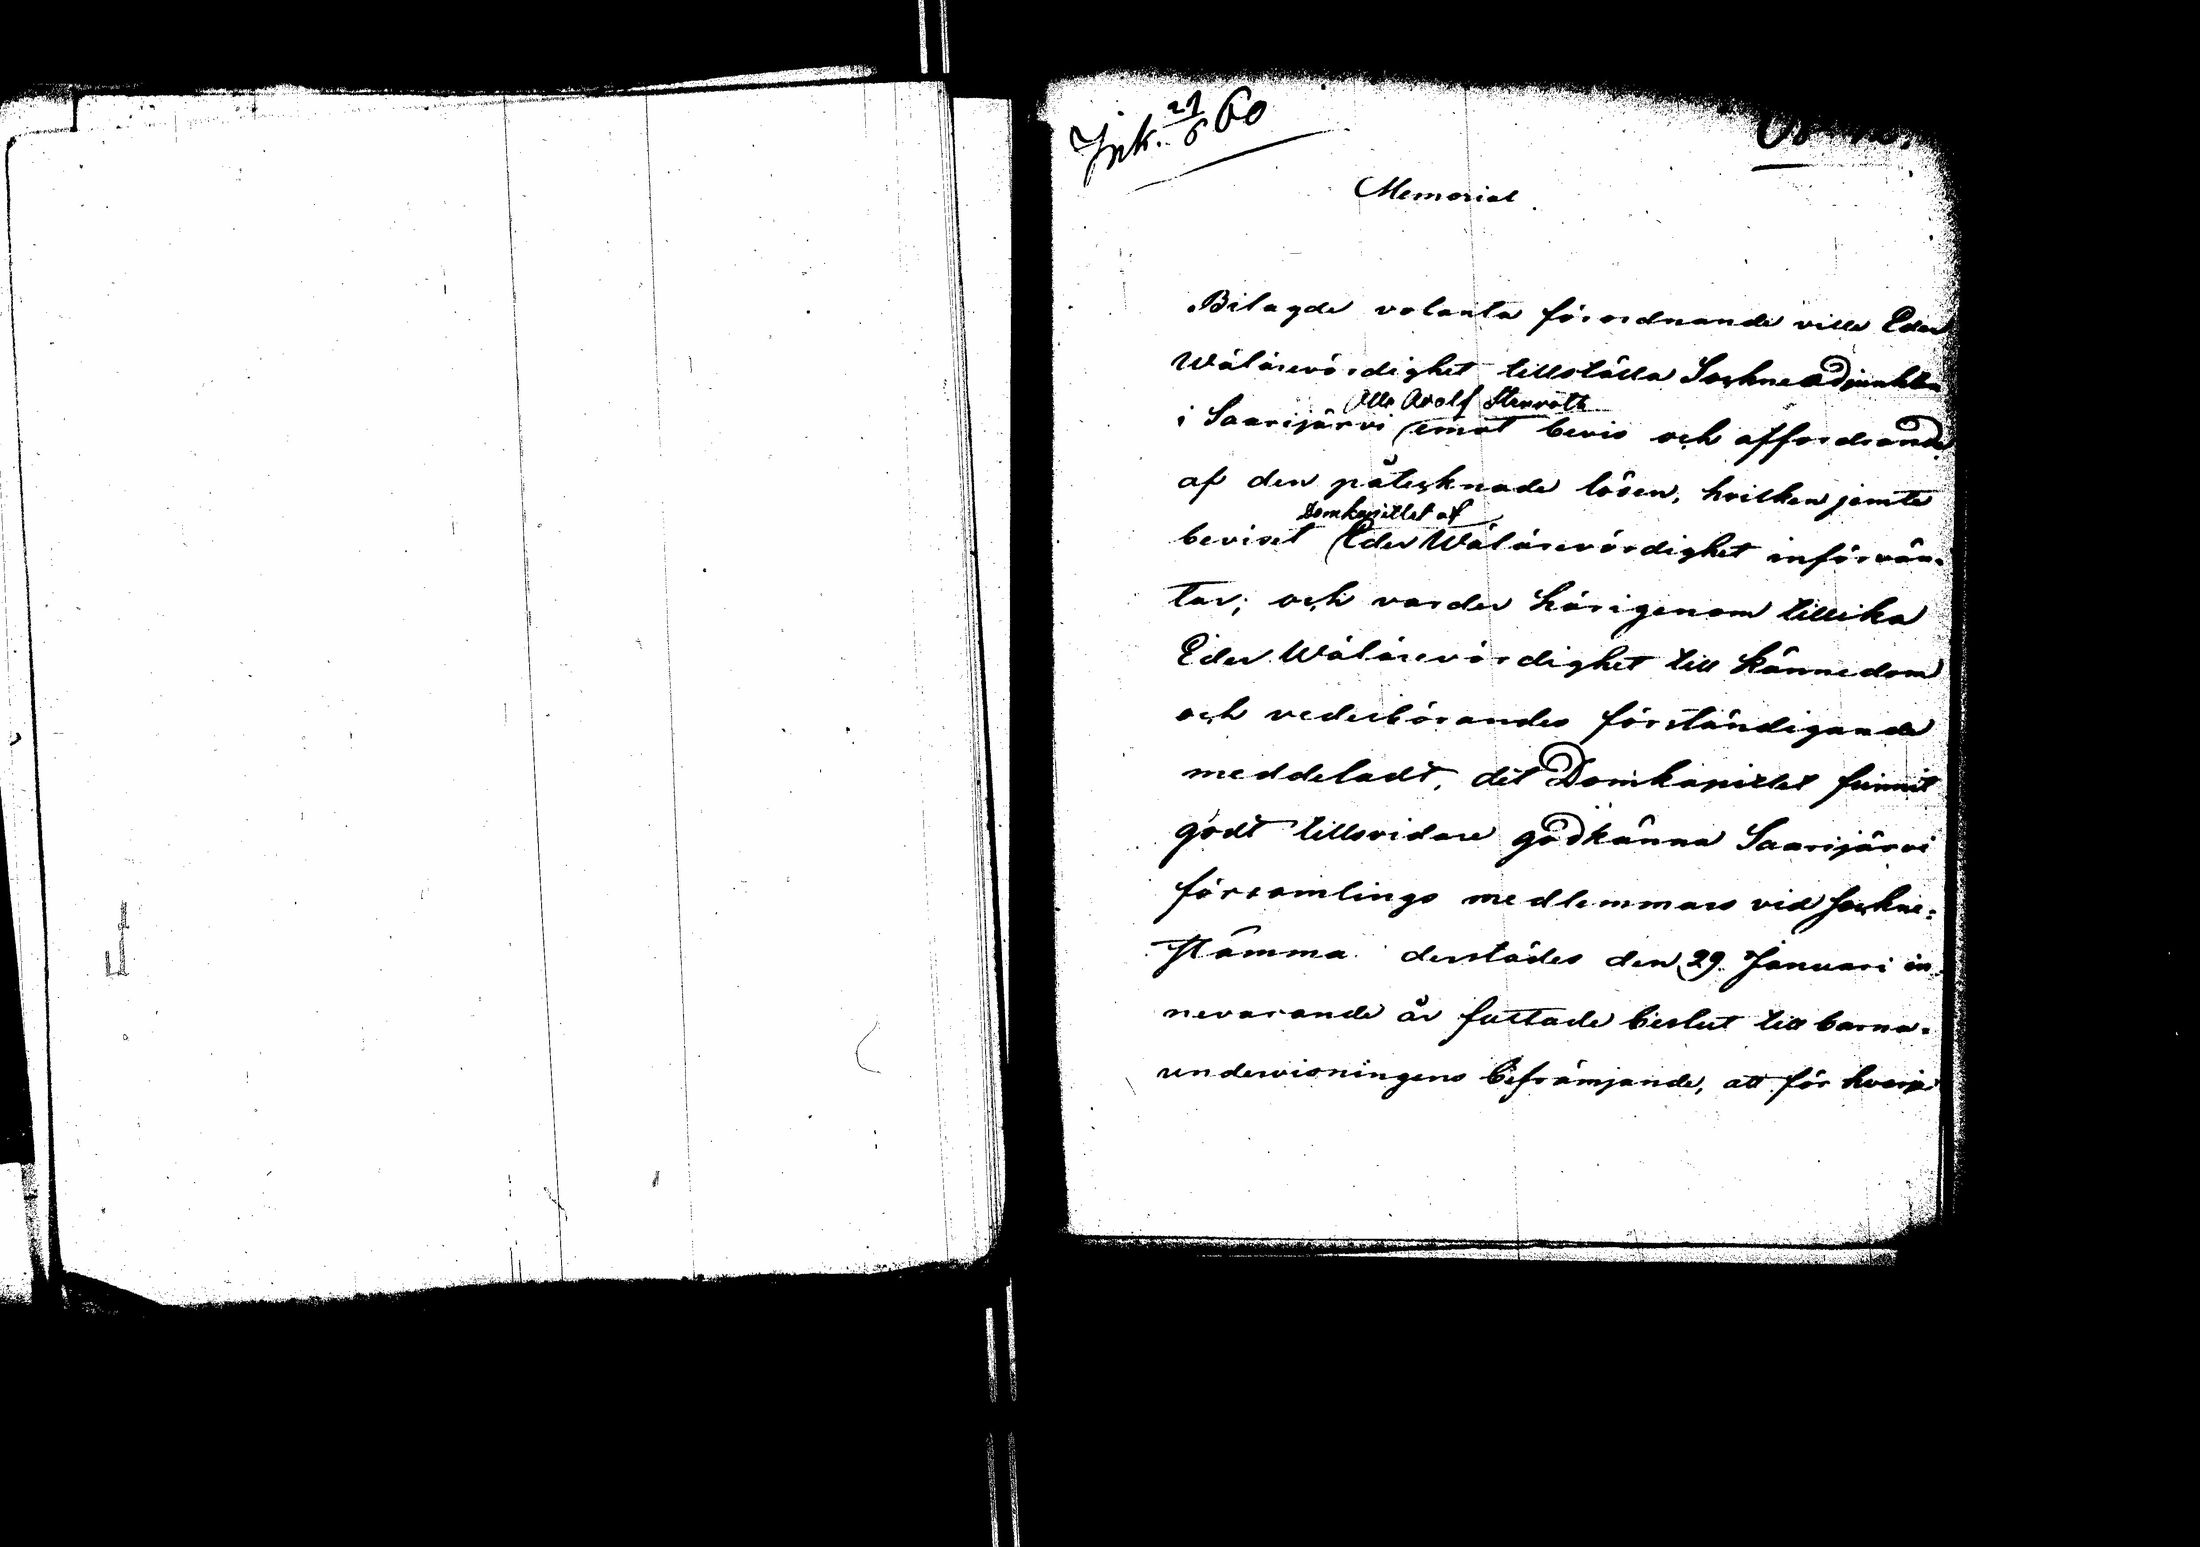 Ink. 21/6 60
Memorial.
Bilagde volanta förordnande ville Eder
Wälärevördighet tillställa Sockneadjunkten
Otto Adolf Stenroth
i Saarijärvi emot bevis och affordrande
af den påtecknade lösen, hvilken jemte
Domkapitlet af
beviset Eder Wälärevördighet införvän-
tar; och varder härigenom tillika
Eder Wälärevördighet till kännedom
och vederbörandes förständigande
meddeladt, det Domkapitlet funnit
godt tillsvidare godkänna Saarijärvi
församlings medlemmars vid Sockne-
stämma derstädes den 29 Januari in-
nevarande år fattade beslut till barna-
undervisningens befrämjande, att för hvarje